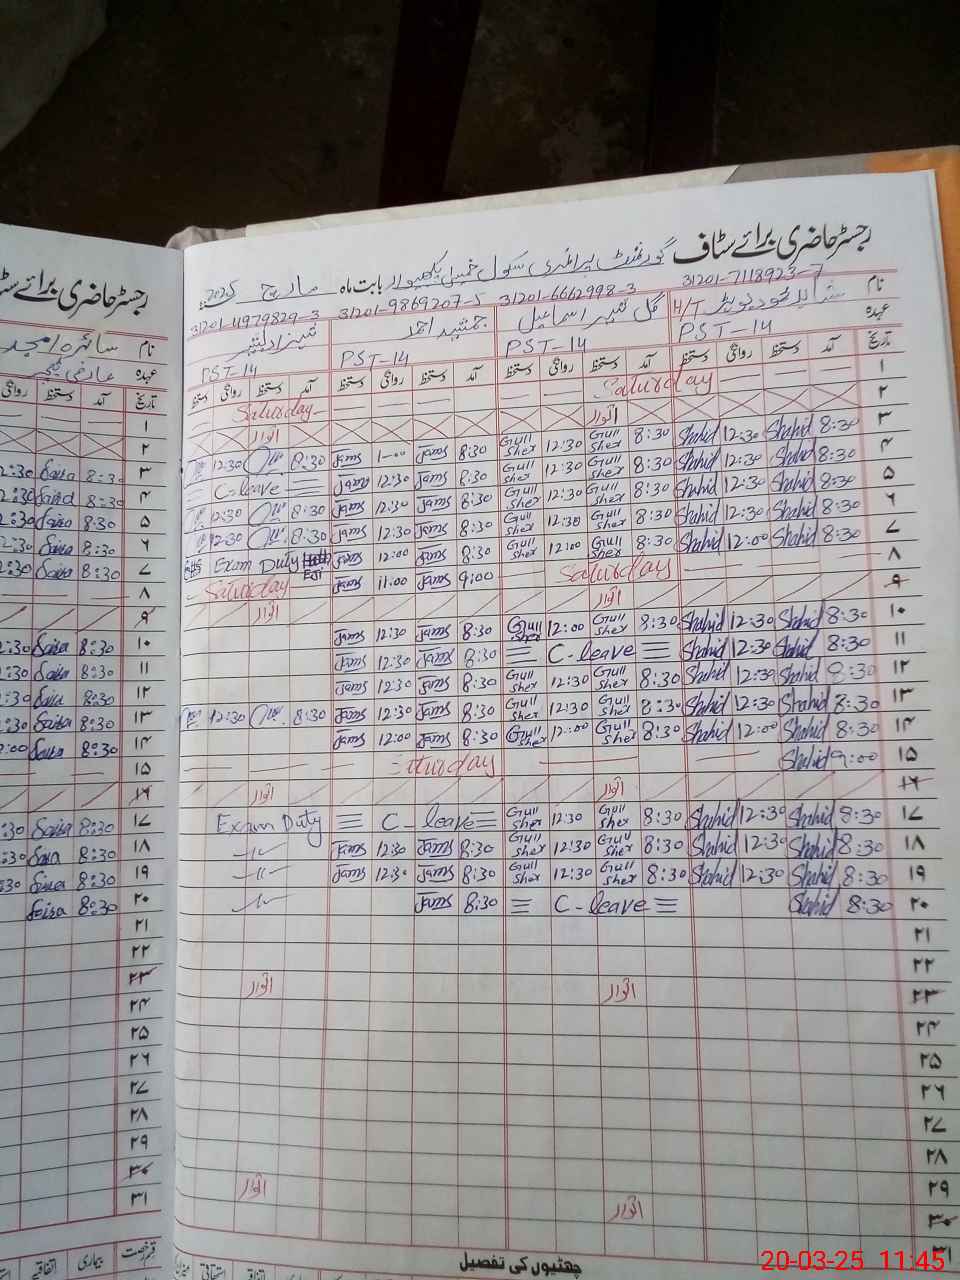 رجسٹر حاضری برائے سٹاف
گورنمنٹ پرائمری سکول بابت ماہ مارچ 2025
نام 31201-7118923-7 31201-6662998-3 31201-9869207-5 31201-4979829-3
H/T گل شیر اسماعیل جمشید احمد
عہدہ PST-14 PST-14 PST-14 PST-14
تاریخ آمد دستخط روانگی دستخط آمد دستخط روانگی دستخط آمد دستخط روانگی دستخط آمد دستخط روانگی دستخط
۱ Saturday Saturday
۲ اتوار اتوار
۳ 8:30 Shahid 12:30 Shahid 8:30 Gull Sher 12:30 Gull Sher 8:30 Jams 1-00 Jams 8:30 12:30
۴ 8:30 Shahid 12:30 Shahid 8:30 Gull Sher 12:30 Gull Sher 8:30 Jams 12:30 Jams C-leave
۵ 8:30 Shahid 12:30 Shahid 8:30 Gull Sher 12:30 Gull Sher 8:30 Jams 12:30 Jams 8:30 12:30
۶ 8:30 Shahid 12:30 Shahid 8:30 Gull Sher 12:30 Gull Sher 8:30 Jams 12:30 Jams 8:30 12:30
۷ 8:30 Shahid 12:00 Shahid 8:30 Gull Sher 12:00 Gull Sher 8:30 Jams 12:00 Jams Exam Duty
۸ Saturday 9:00 Jams 11:00 Jams Saturday
۹ اتوار اتوار
۱۰ 8:30 Shahid 12:30 Shahid 8:30 Gull Sher 12:00 Gull Sher 8:30 Jams 12:30 Jams
۱۱ 8:30 Shahid 12:30 Shahid C-leave 8:30 Jams 12:30 Jams
۱۲ 8:30 Shahid 12:30 Shahid 8:30 Gull Sher 12:30 Gull Sher 8:30 Jams 12:30 Jams
۱۳ 8:30 Shahid 12:30 Shahid 8:30 Gull Sher 12:30 Gull Sher 8:30 Jams 12:30 Jams 8:30 12:30
۱۴ 8:30 Shahid 12:00 Shahid 8:30 Gull Sher 12:00 Gull Sher 8:30 Jams 12:00 Jams
۱۵ 9:00 Shahid Saturday
۱۶ اتوار اتوار
۱۷ 8:30 Shahid 12:30 Shahid 8:30 Gull Sher 12:30 Gull Sher C-leave Exam Duty
۱۸ 8:30 Shahid 12:30 Shahid 8:30 Gull Sher 12:30 Gull Sher 8:30 Jams 12:30 Jams -//-
۱۹ 8:30 Shahid 12:30 Shahid 8:30 Gull Sher 12:30 Gull Sher 8:30 Jams 12:30 Jams -//-
۲۰ 8:30 Shahid C-leave 8:30 Jams -//-
۲۱
۲۲
۲۳ اتوار اتوار
۲۴
۲۵
۲۶
۲۷
۲۸
۲۹
۳۰ اتوار اتوار
۳۱
چھٹیوں کی تفصیل
رجسٹر حاضری برائے
نام سائرہ امجد
عہدہ عارضی ٹیچر
تاریخ آمد دستخط روانگی
۱
۲
۳ 8:30 Saira
۴ 8:30 Saira
۵ 8:30 Saira
۶ 8:30 Saira
۷ 8:30 Saira
۸
۹
۱۰ 8:30 Saira
۱۱ 8:30 Saira
۱۲ 8:30 Saira
۱۳ 8:30 Saira
۱۴ 8:30 Saira
۱۵
۱۶
۱۷ 8:30 Saira
۱۸ 8:30 Saira
۱۹ 8:30 Saira
۲۰ 8:30 Saira
۲۱
۲۲
۲۳
۲۴
۲۵
۲۶
۲۷
۲۸
۲۹
۳۰
۳۱
قسم رخصت بیماری اتفاقیہ
20-03-25 11:45